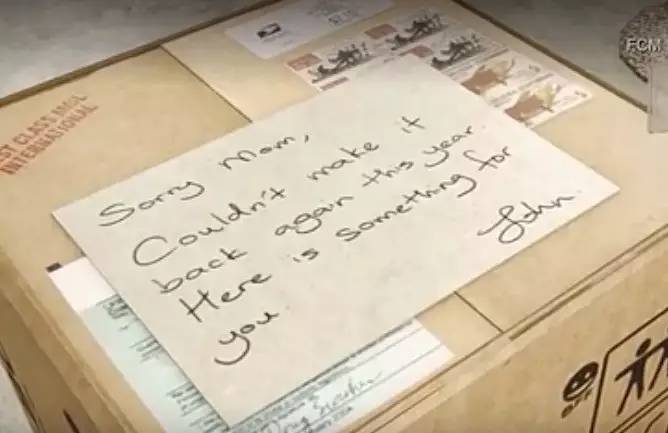 FCM
ST CLASS MAIL
INTERNATIONAL
Sorry Mom,
Couldn't make it
back again this year.
Here is something for
you.
John